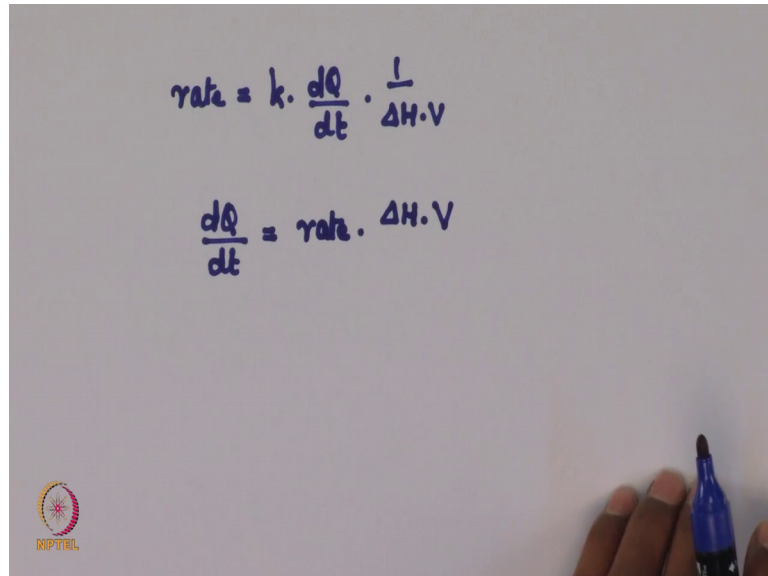 rate = k. dQ/dt . 1/ΔH.V
dQ/dt = rate. ΔH.V
NPTEL